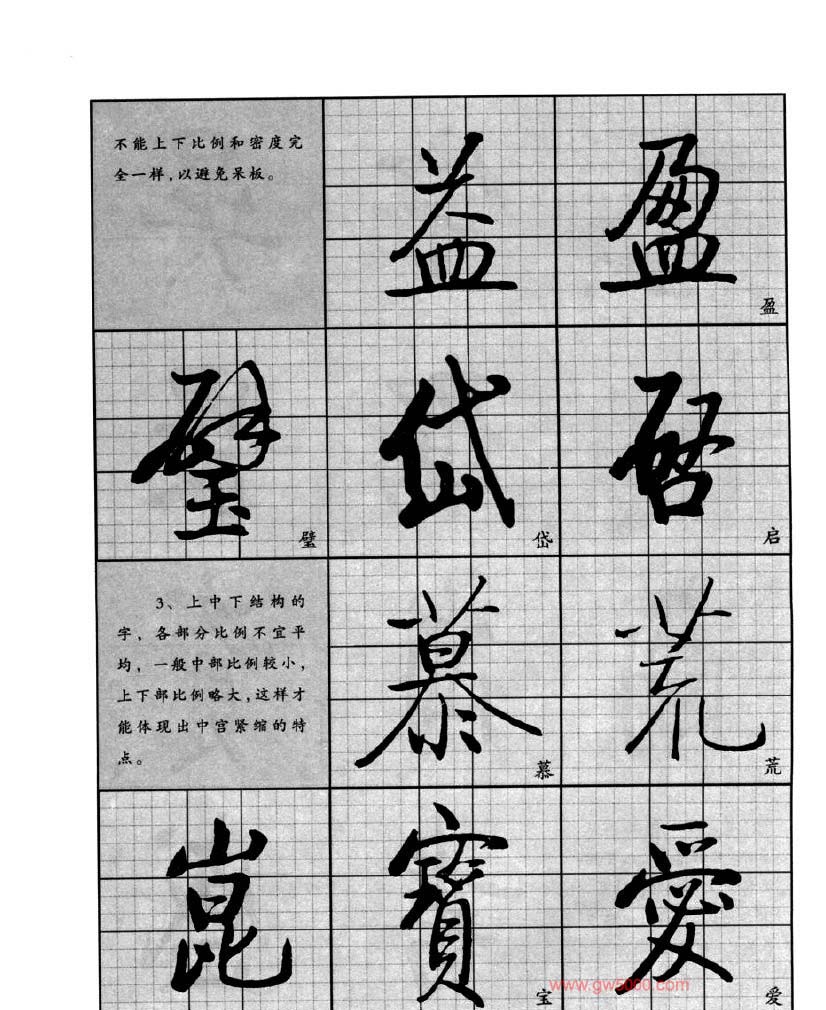 不能上下比例和密度完
全一样,以避免呆板。
益
盈
盈
璧
璧
岱
岱
启
启
3、上中下结构的
字，各部分比例不宜平
均，一般中部比例较小，
上下部比例略大,这样才
能体现出中宫紧缩的特
点。
慕
慕
荒
荒
崑
寳
宝
愛
爱
www.gw5000.com